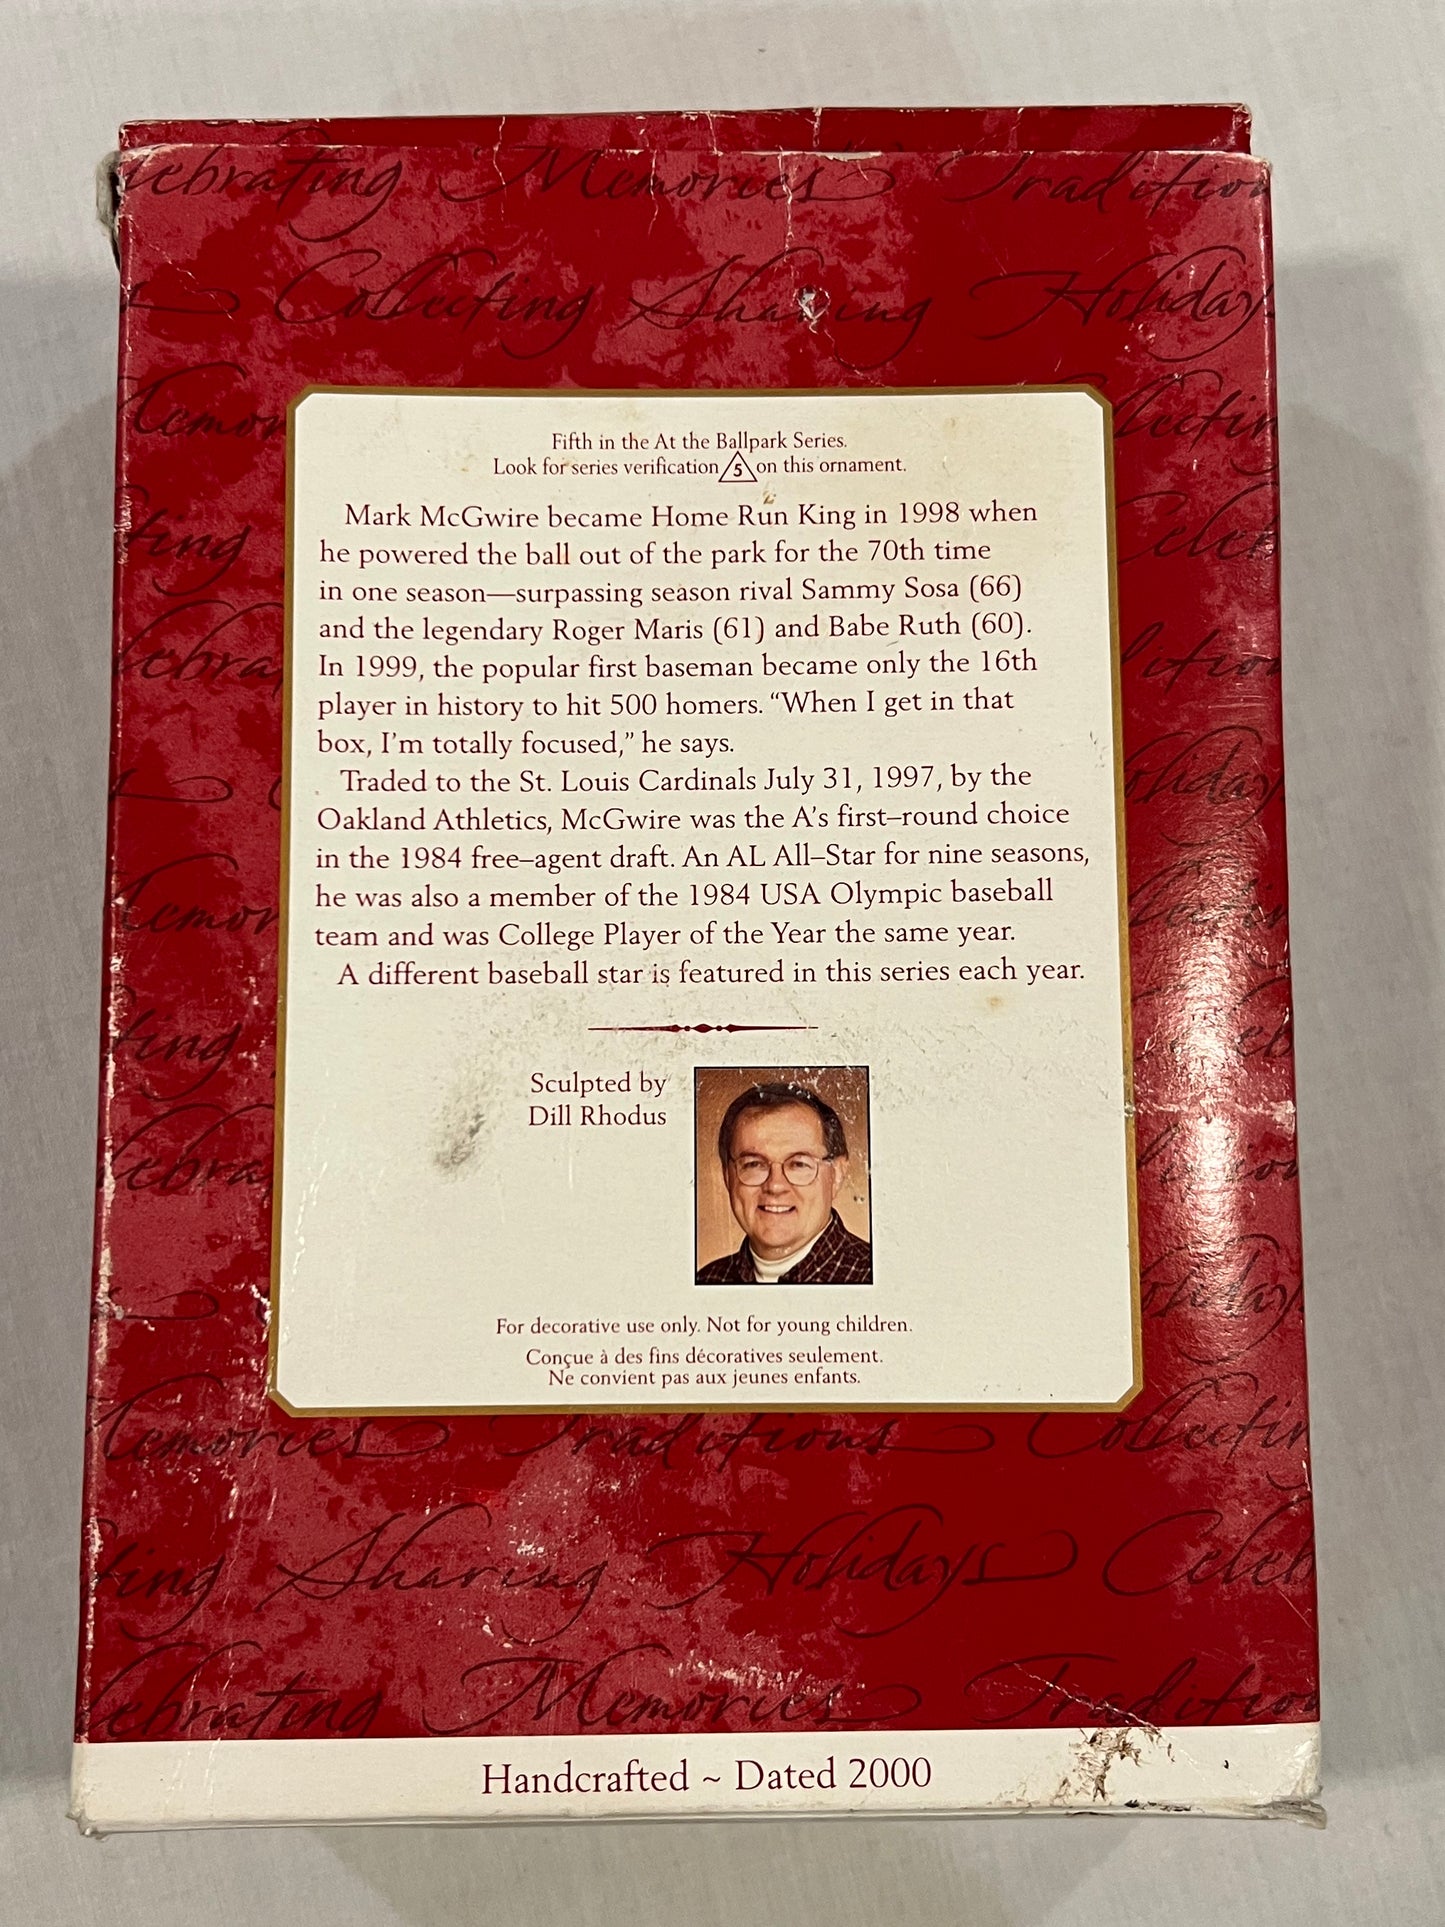 Celebrating Memories Traditions
Collecting Sharing Holidays
Memories Collecting
Fifth in the At the Ballpark Series.
Look for series verification 5 on this ornament.
Mark McGwire became Home Run King in 1998 when
he powered the ball out of the park for the 70th time
in one season—surpassing season rival Sammy Sosa (66)
and the legendary Roger Maris (61) and Babe Ruth (60).
In 1999, the popular first baseman became only the 16th
player in history to hit 500 homers. “When I get in that
box, I'm totally focused,” he says.
Traded to the St. Louis Cardinals July 31, 1997, by the
Oakland Athletics, McGwire was the A's first–round choice
in the 1984 free–agent draft. An AL All–Star for nine seasons,
he was also a member of the 1984 USA Olympic baseball
team and was College Player of the Year the same year.
A different baseball star is featured in this series each year.
Sculpted by
Dill Rhodus
For decorative use only. Not for young children.
Conçue à des fins décoratives seulement.
Ne convient pas aux jeunes enfants.
Memories Traditions Collecting
Sharing Holidays
Celebrating Memories Traditions
Handcrafted ~ Dated 2000